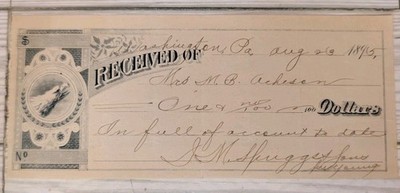 Washington, Pa, Aug 23 1895,
$
RECEIVED OF
Mrs. M. B. Acheson
One & no/100 100 Dollars
In full of account to date
No
S. M. Spriggs & Sons